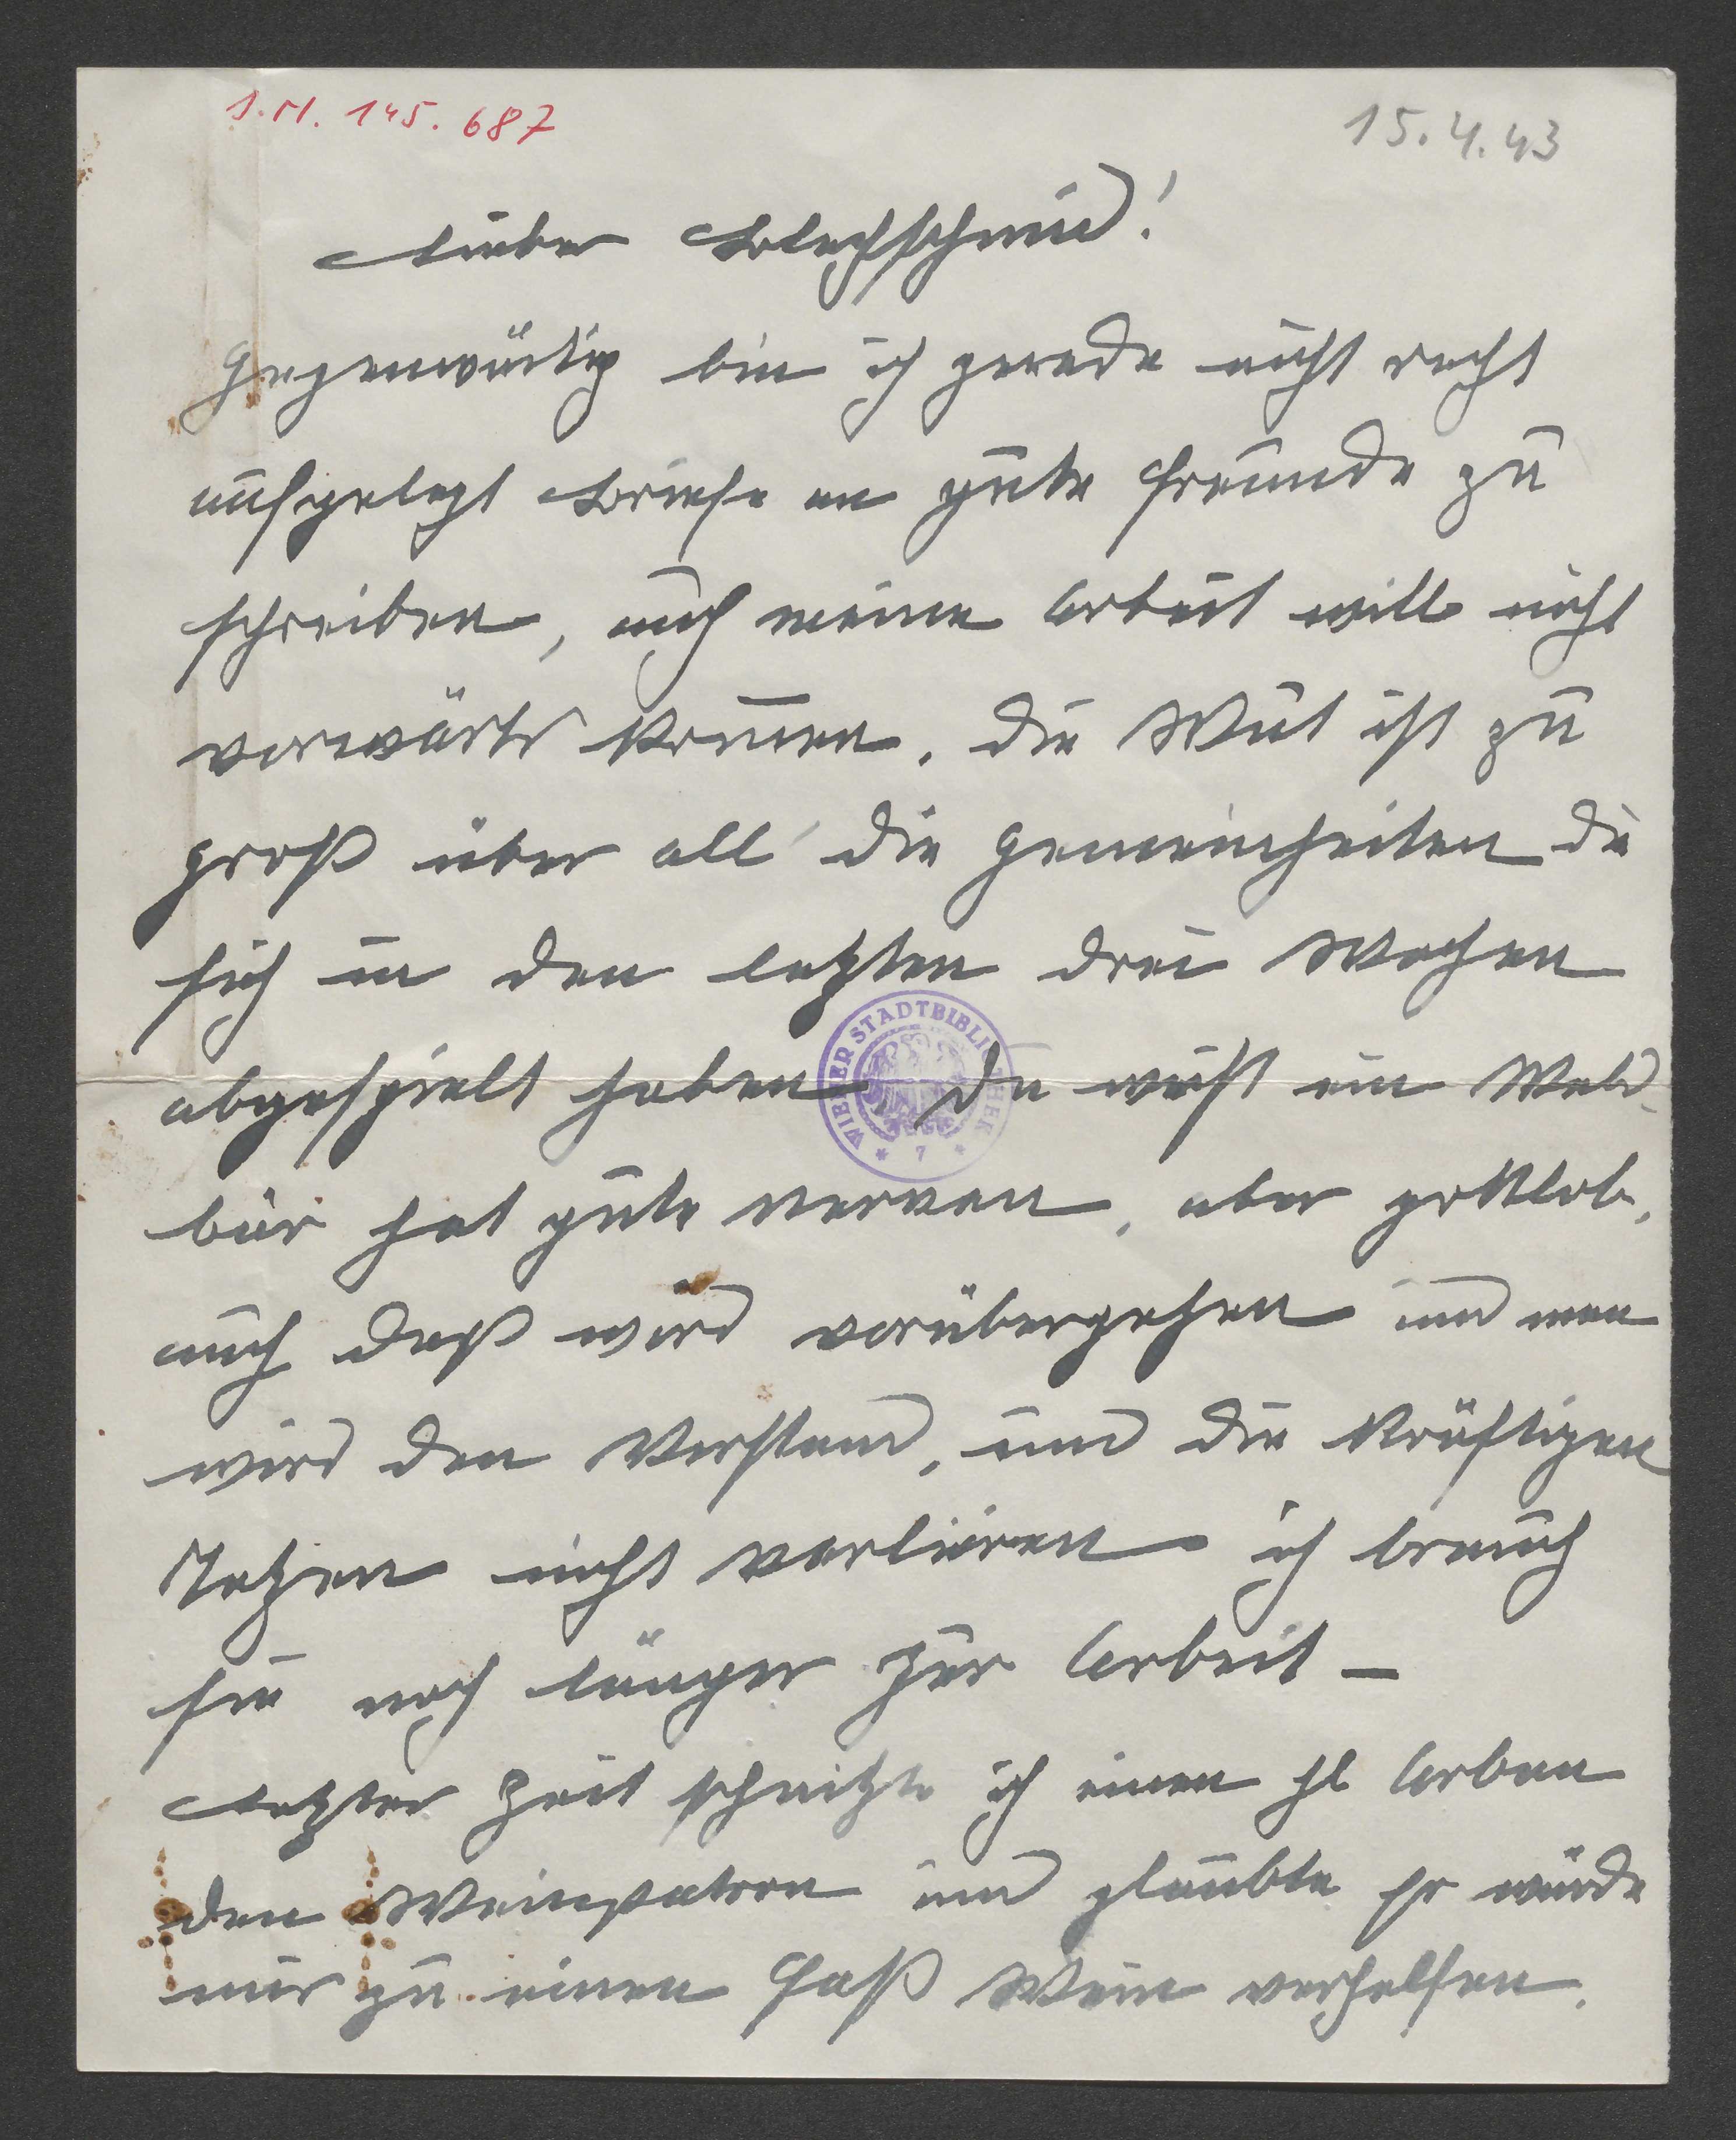 I.N. 145.687
15.4.43
Lieber Blechschmid!
Gegenwärtig bin ich gerade nicht recht
aufgelegt Briefe an gute Freunde zu
schreiben, auch meine Arbeit will nicht
vorwärts kommen. Die Wut ist zu
groß über all' die Gemeinheiten die
sich in den letzten drei Wochen
abgespielt haben. Du weißt ein Wald-
bär hat gute Nerven, aber gottlob,
auch daß wird vorübergehen und man
wird den Verstand, und die kräftigen
Tatzen nicht verlieren ich brauch
sie noch länger zur Arbeit –
Letzter Zeit schnitzte ich einen hl Urban
den Weinpatron und glaubte Er würde
mir zu einen Faß Wein verhelfen.
WIENER STADTBIBLIOTHEK
* 7 *